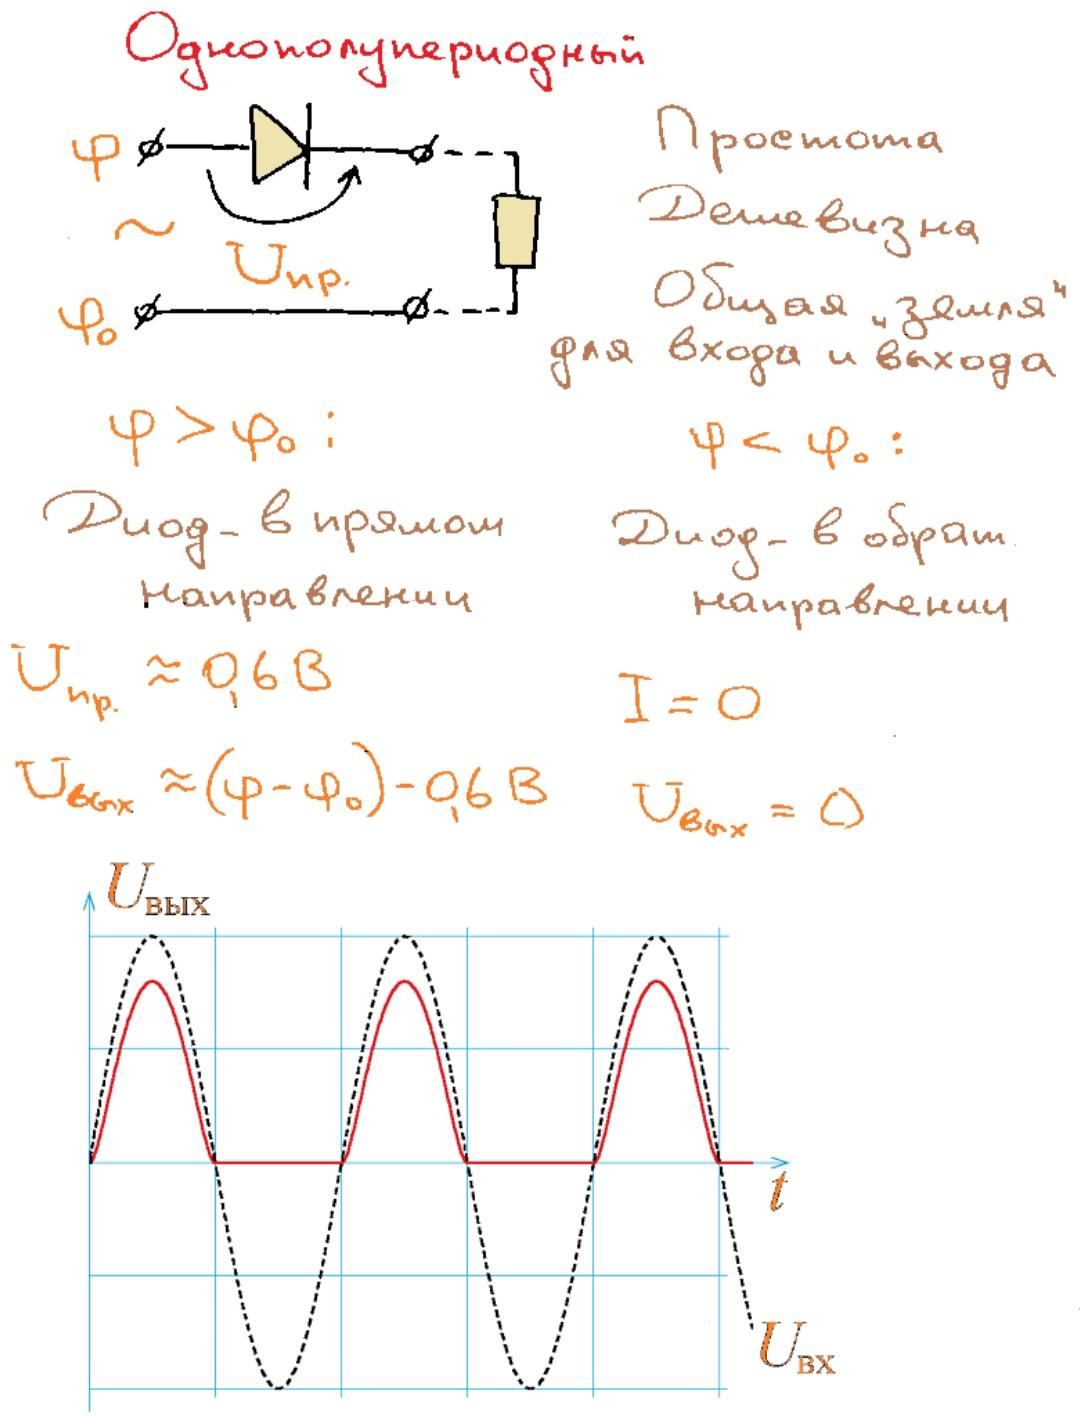 Однополупериодный
φ
~
Uпр.
φ₀
Простота
Дешевизна
Общая „земля“
для входа и выхода
φ > φ₀ :
Диод - в прямом
направлении
Uпр. ≈ 0,6 В
Uвых ≈ (φ - φ₀) - 0,6 В
φ < φ₀ :
Диод - в обрат.
направлении
I = 0
Uвых = 0
Uвых
t
Uвх